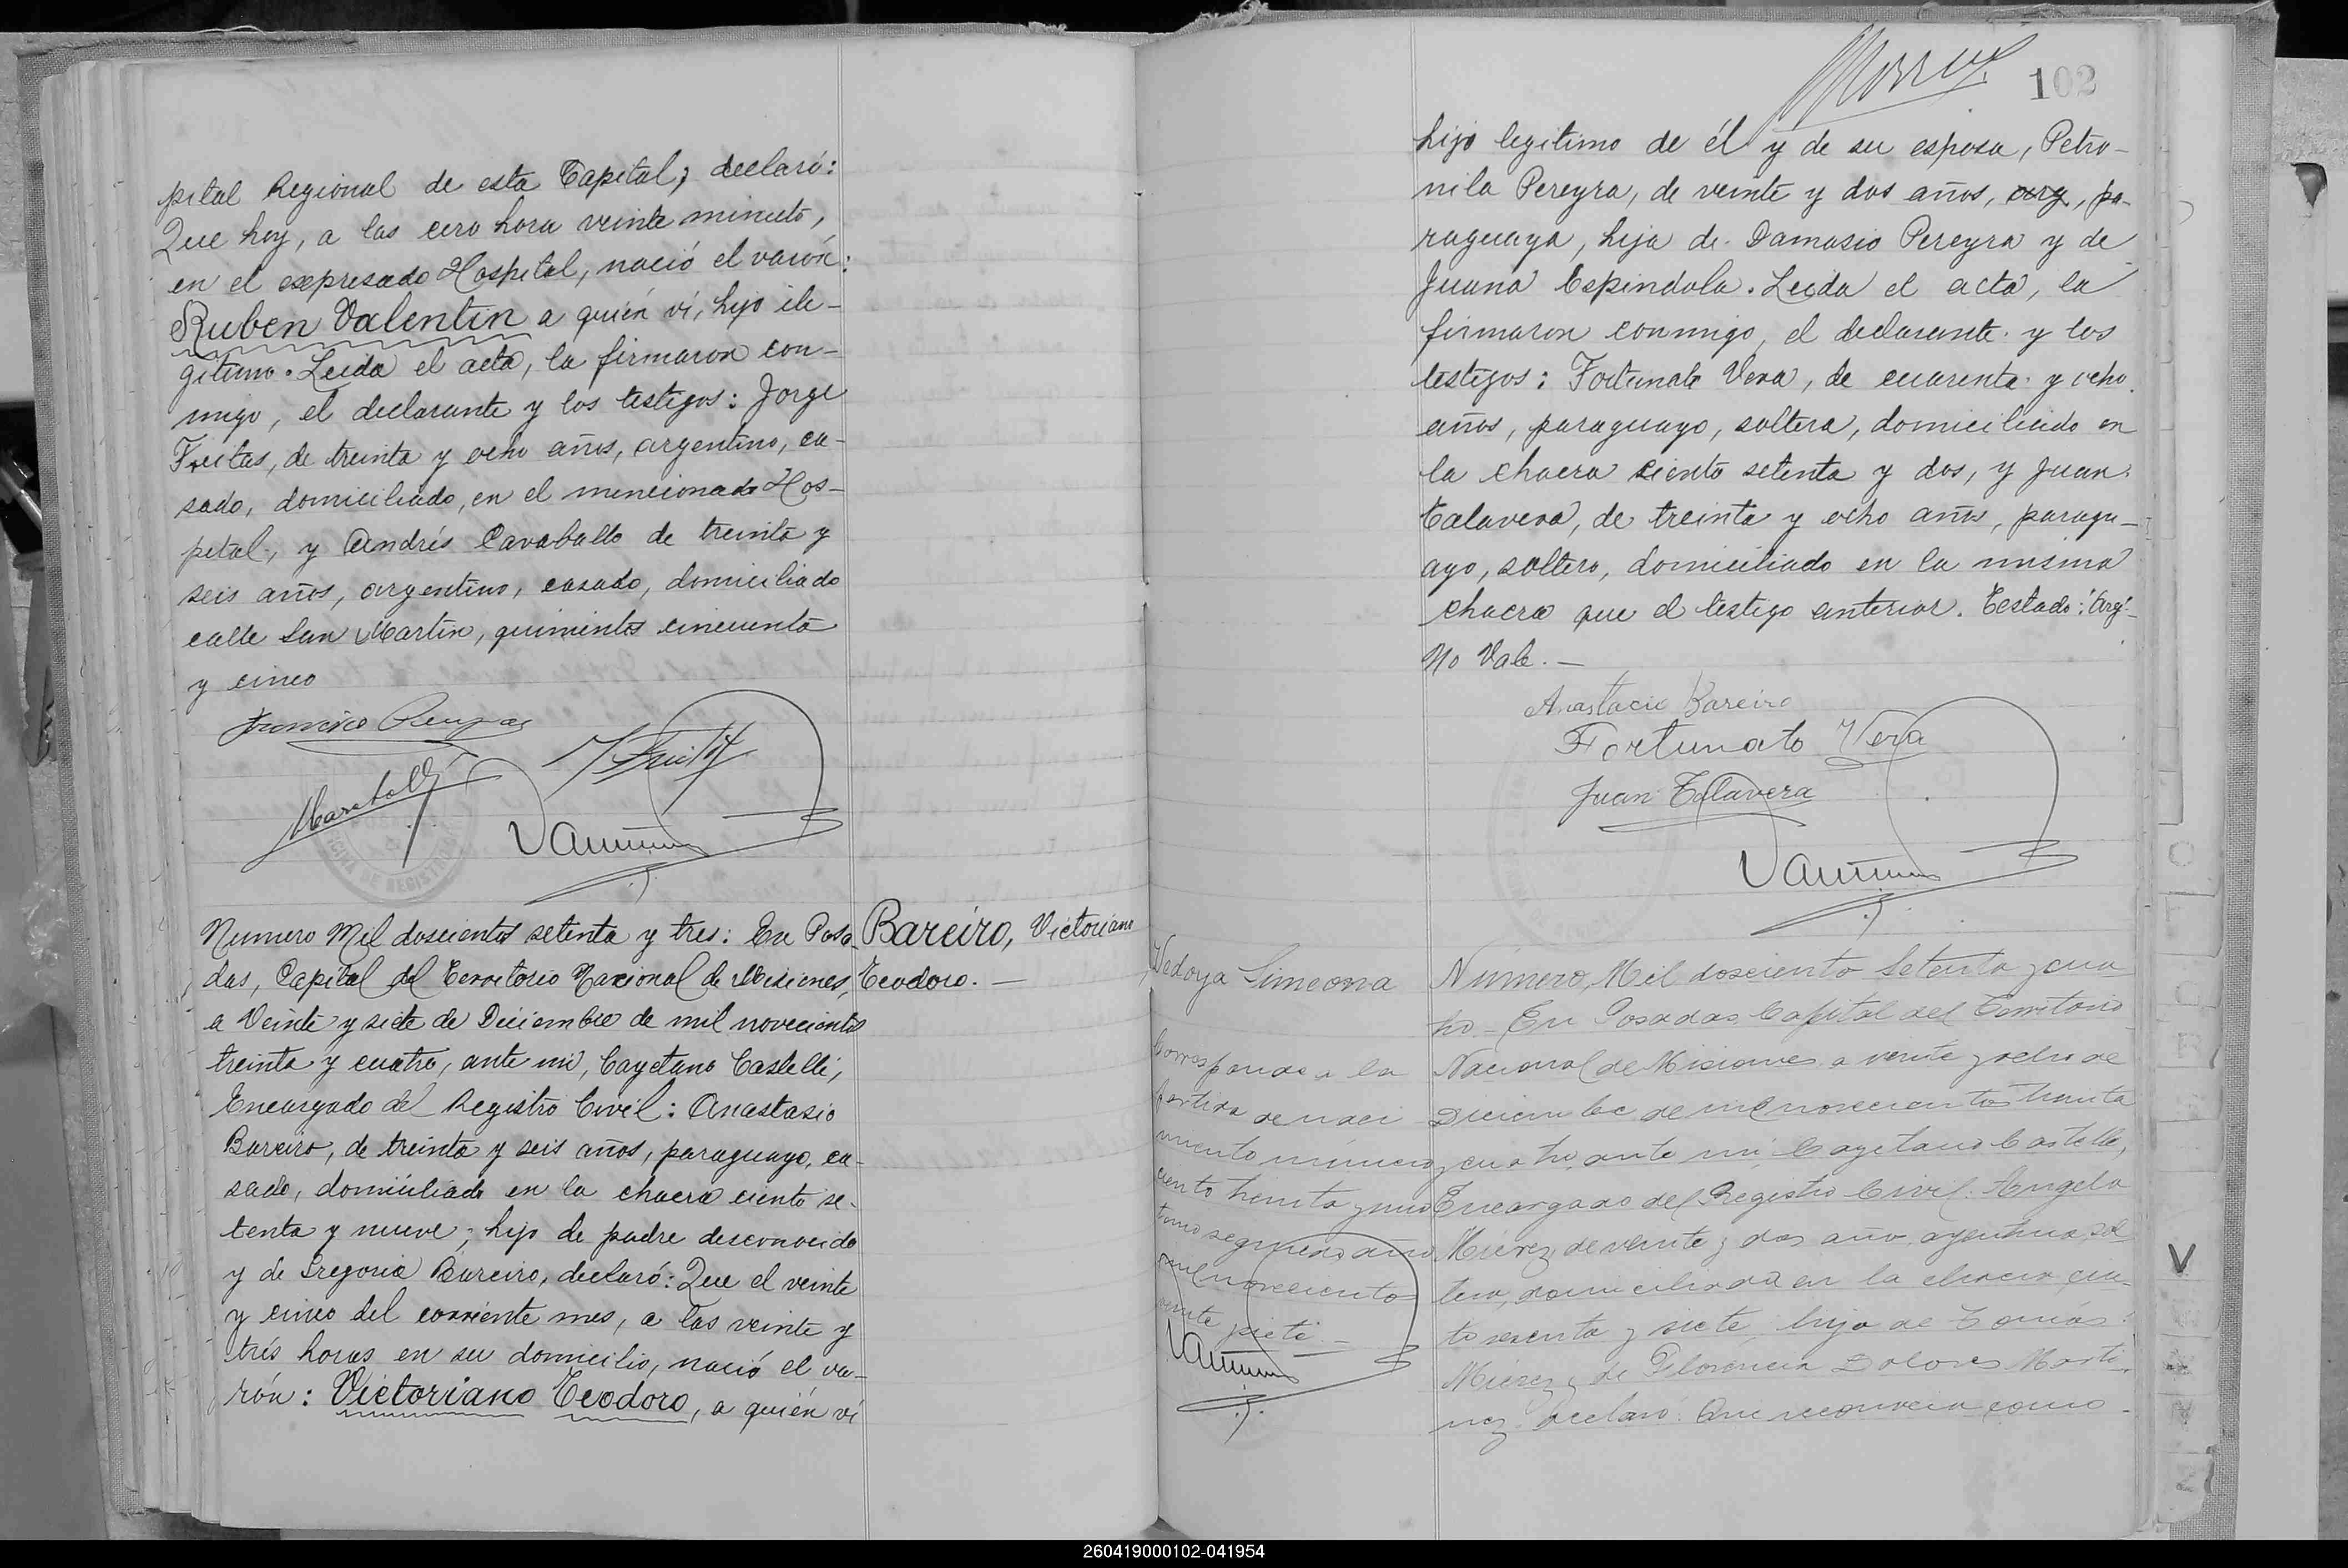 pital Regional de esta Capital; declaró:
Que hoy, a las cero hora veinte minuto,
en el expresado Hospital, nació el varón:
Ruben Valentin a quién ví, hijo ile-
gitimo. Leida el acta, la firmaron con-
migo, el declarante y los testigos: Jorge
Freitas, de treinta y ocho años, argentino, ca-
sado, domiciliado, en el mencionado Hos-
pital, y Andrés Cavaballo de treinta y
seis años, argentino, casado, domiciliado
calle San Martin, quinientos cincuenta
y cinco
Numero Mil doscientos setenta y tres: En Posa-
das, Capital del Territorio Nacional de Misiones,
a Veinte y siete de Diciembre de mil novecientos
treinta y cuatro, ante mi, Cayetano Castelli,
Encargado del Registro Civil: Anastasio
Bareiro, de treinta y seis años, paraguayo, ca-
sado, domiciliado en la chacra ciento se-
tenta y nueve; hijo de padre desconocido
y de Gregoria Bareiro, declaró: Que el veinte
y cinco del corriente mes, a las veinte y
trés horas en su domicilio, nació el va-
rón: Victoriano Teodoro, a quién ví
Bareiro, Victoriano
Teodoro. —
102
hijo legitimo de él y de su esposa, Petro-
nila Pereyra, de veinte y dos años, arg, pa-
raguaya, hija de Damasio Pereyra y de
Juana Espindola. Leida el acta, la
firmaron conmigo, el declarante y los
testigos: Fortunato Vera, de cuarenta y ocho
años, paraguayo, soltero, domiciliado en
la chacra ciento setenta y dos, y Juan
Talavera, de treinta y ocho años, paragu-
ayo, soltero, domiciliado en la misma
chacra que el testigo anterior. Testado: "Arg"-
No Vale. —
Anastacio Bareiro
Fortunato Vera
Juan Talavera
Vedoya Simeona
Corresponde a la
partida de naci
miento número
ciento treinta y uno
tomo segundo año
mil novecientos
veinte siete. —
Número, Mil dosciento Setenta y cua
tro - En Posadas, Capital del Territorio
Nacional de Misiones a veinte y ocho de
Diciembre de mil novecientos treinta
y cuatro, ante mi Cayetano Castelli,
Encargado del Registro Civil: Angela
Mierez, de veinte y dos año argentina, sol
tera, domiciliada en la chacra cien-
to sesenta y siete, hija de Tomás
Mierez y de Florencia Dolores Marti
nez declaró: Que reconocia como
260419000102-041954